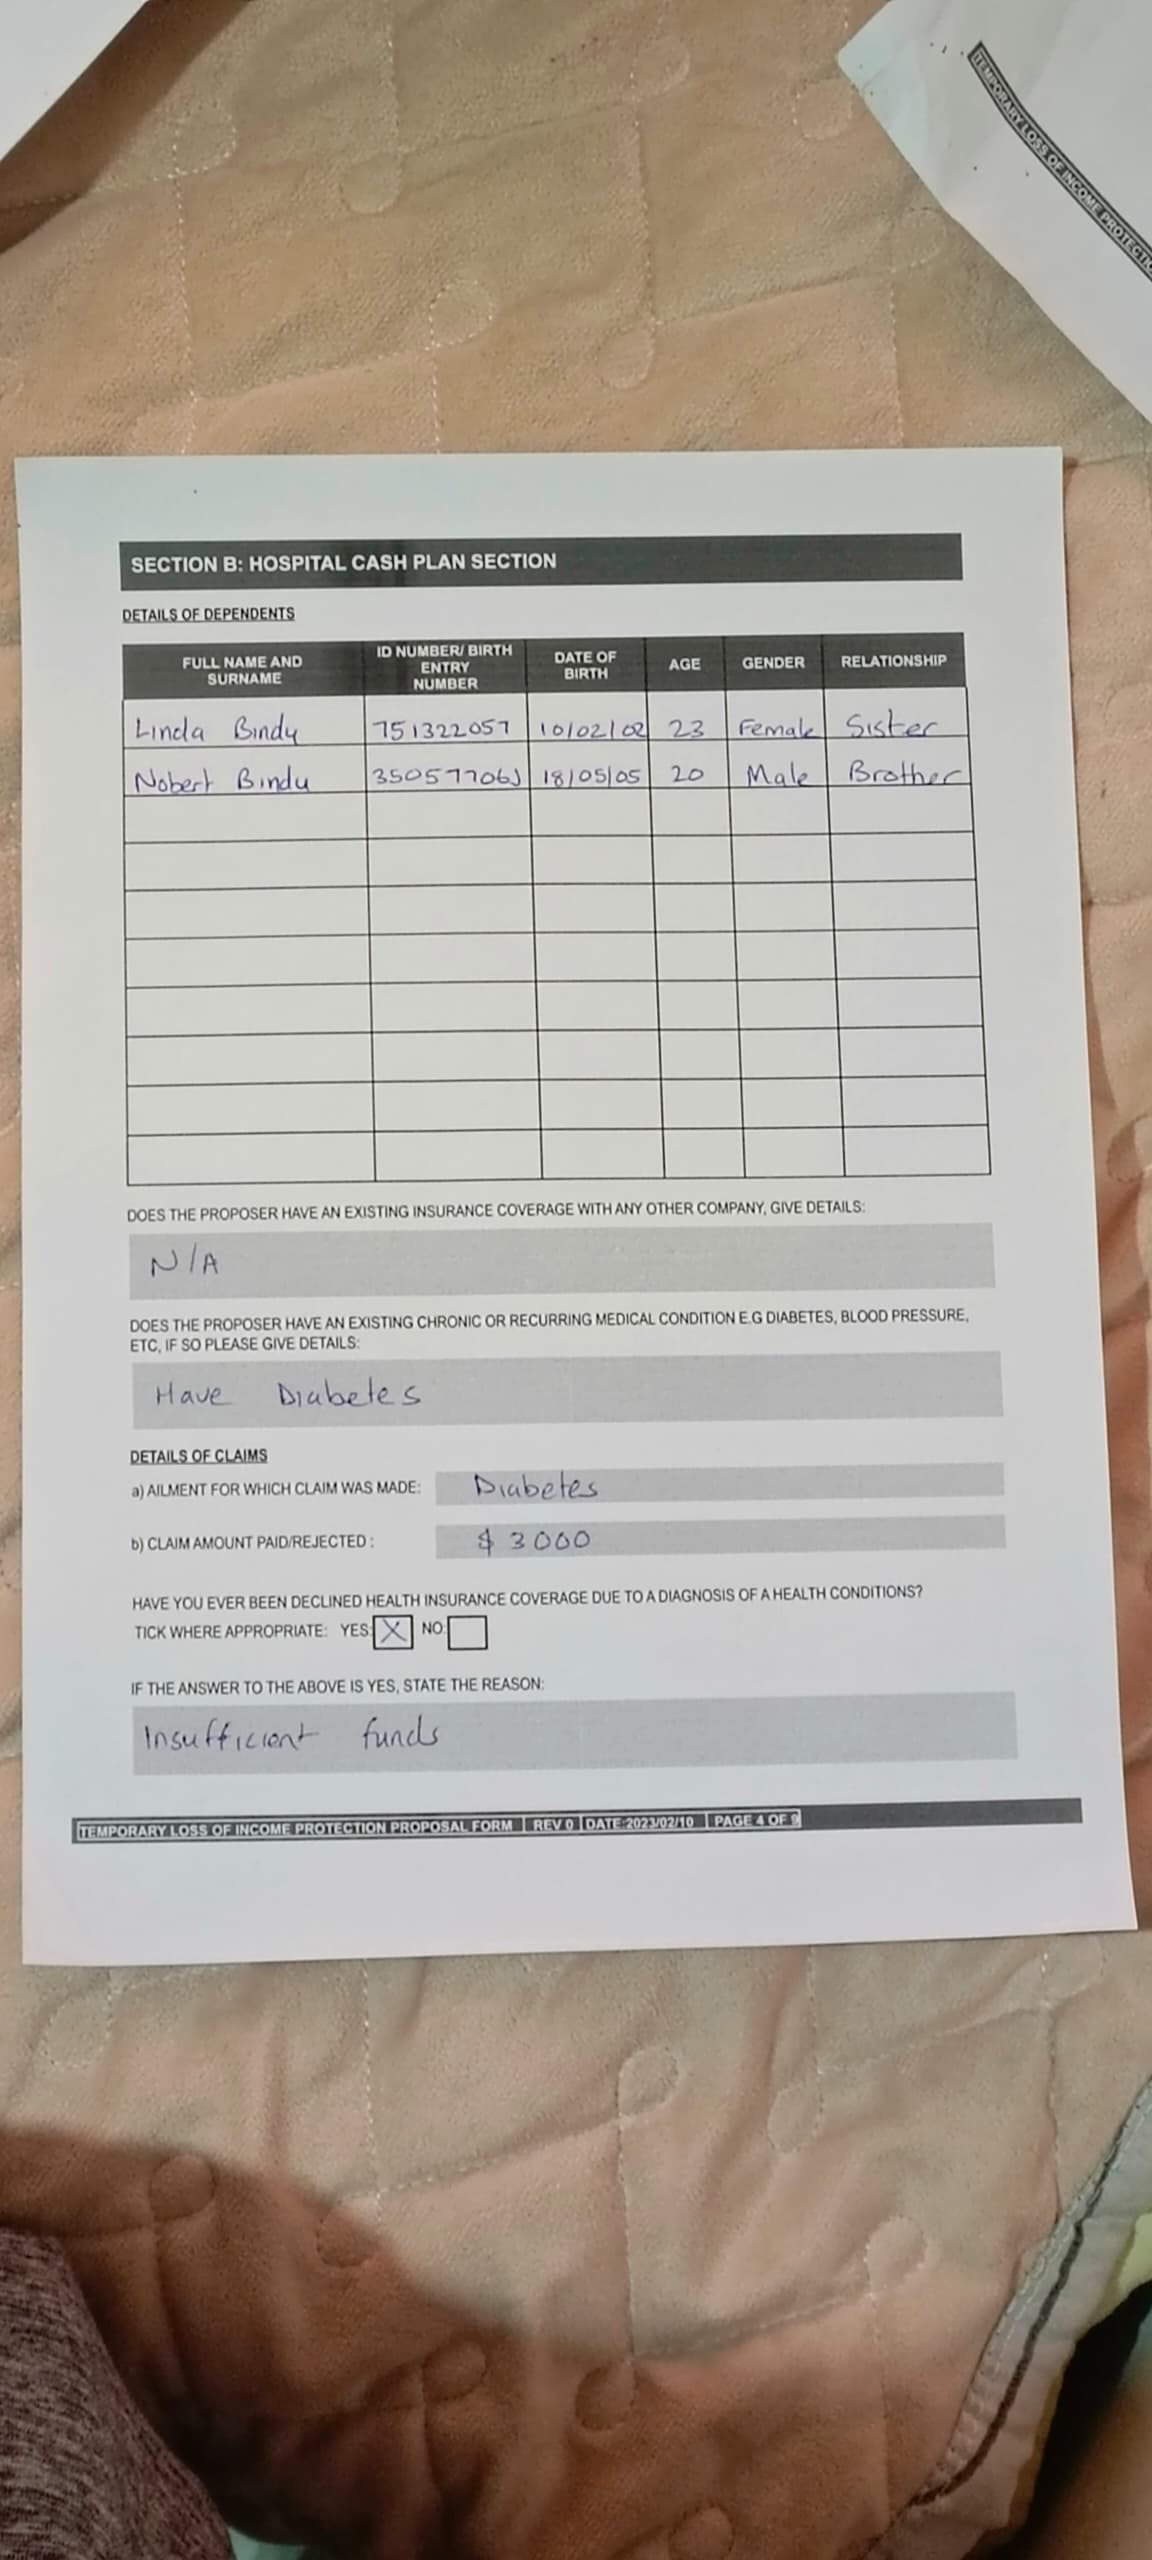 TEMPORARY LOSS OF INCOME PROTECTI
SECTION B: HOSPITAL CASH PLAN SECTION
DETAILS OF DEPENDENTS
FULL NAME AND SURNAME ID NUMBER/ BIRTH ENTRY NUMBER DATE OF BIRTH AGE GENDER RELATIONSHIP
Linda Bindu 751322057 10/02/02 23 Female Sister
Nobert Bindu 35057706J 18/05/05 20 Male Brother
DOES THE PROPOSER HAVE AN EXISTING INSURANCE COVERAGE WITH ANY OTHER COMPANY, GIVE DETAILS:
N/A
DOES THE PROPOSER HAVE AN EXISTING CHRONIC OR RECURRING MEDICAL CONDITION E.G DIABETES, BLOOD PRESSURE,
ETC, IF SO PLEASE GIVE DETAILS:
Have Diabetes
DETAILS OF CLAIMS
a) AILMENT FOR WHICH CLAIM WAS MADE: Diabetes
b) CLAIM AMOUNT PAID/REJECTED : $ 3000
HAVE YOU EVER BEEN DECLINED HEALTH INSURANCE COVERAGE DUE TO A DIAGNOSIS OF A HEALTH CONDITIONS?
TICK WHERE APPROPRIATE: YES: X NO:
IF THE ANSWER TO THE ABOVE IS YES, STATE THE REASON:
Insufficient funds
TEMPORARY LOSS OF INCOME PROTECTION PROPOSAL FORM | REV 0 | DATE:2023/02/10 | PAGE 4 OF 9